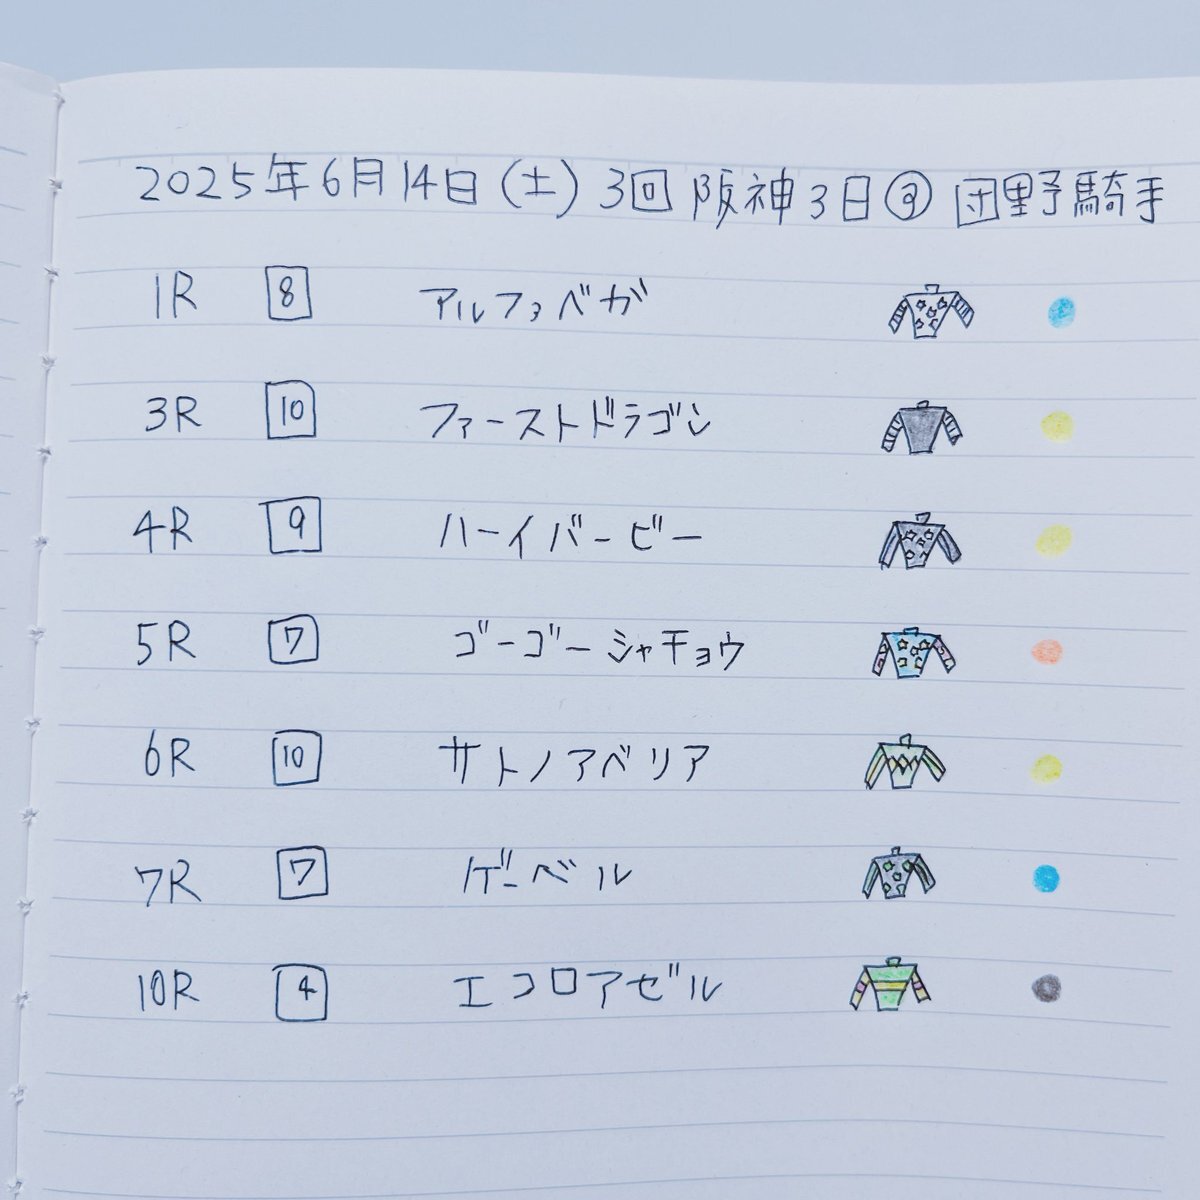 2025年6月14日(土)3回阪神3日③団野騎手
1R 8 アルファベガ
3R 10 ファーストドラゴン
4R 9 ハーイバービー
5R 7 ゴーゴーシャチョウ
6R 10 サトノアベリア
7R 7 ゲーベル
10R 4 エコロアゼル